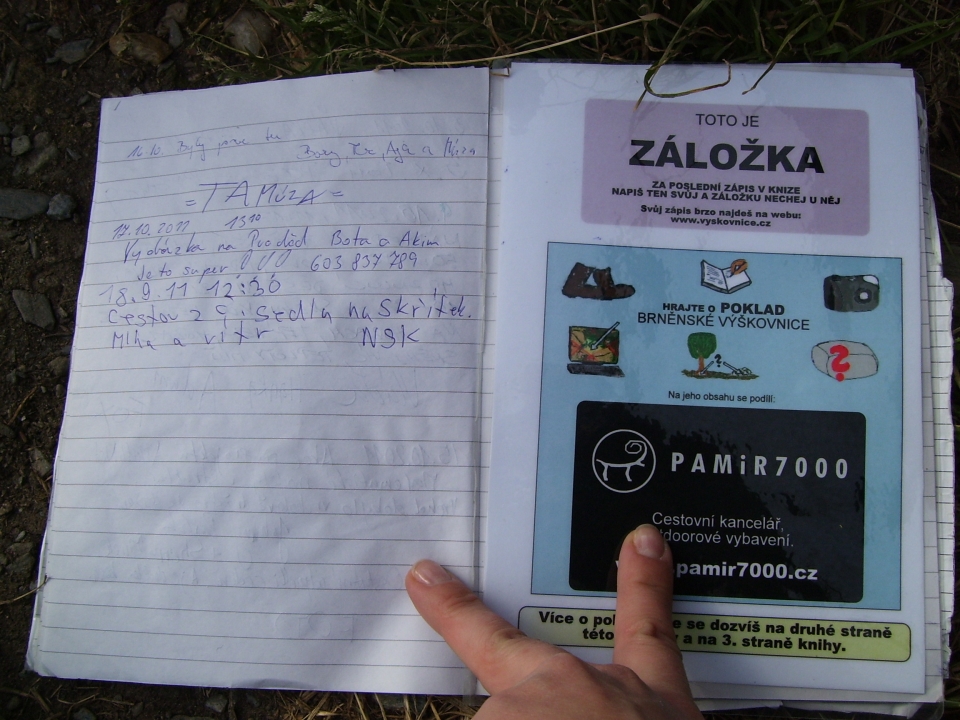 16.10. Byly jsme tu
= TAMÚZA =
17.10.2011 13¹⁰
na Bota a Akim
Je to super 603 837 789
18.9.11 12:30
Cestou z 9i sedla na skřítek.
Mlha a vítr NSK
TOTO JE
ZÁLOŽKA
ZA POSLEDNÍ ZÁPIS V KNIZE
NAPIŠ TEN SVŮJ A ZÁLOŽKU NECHEJ U NĚJ
Svůj zápis brzo najdeš na webu:
www.vyskovnice.cz
HRAJTE O POKLAD
BRNĚNSKÉ VÝŠKOVNICE
?
?
Na jeho obsahu se podílí:
PAMiR7000
Cestovní kancelář,
doorové vybavení.
pamir7000.cz
Více o po e se dozvíš na druhé straně
této y a na 3. straně knihy.